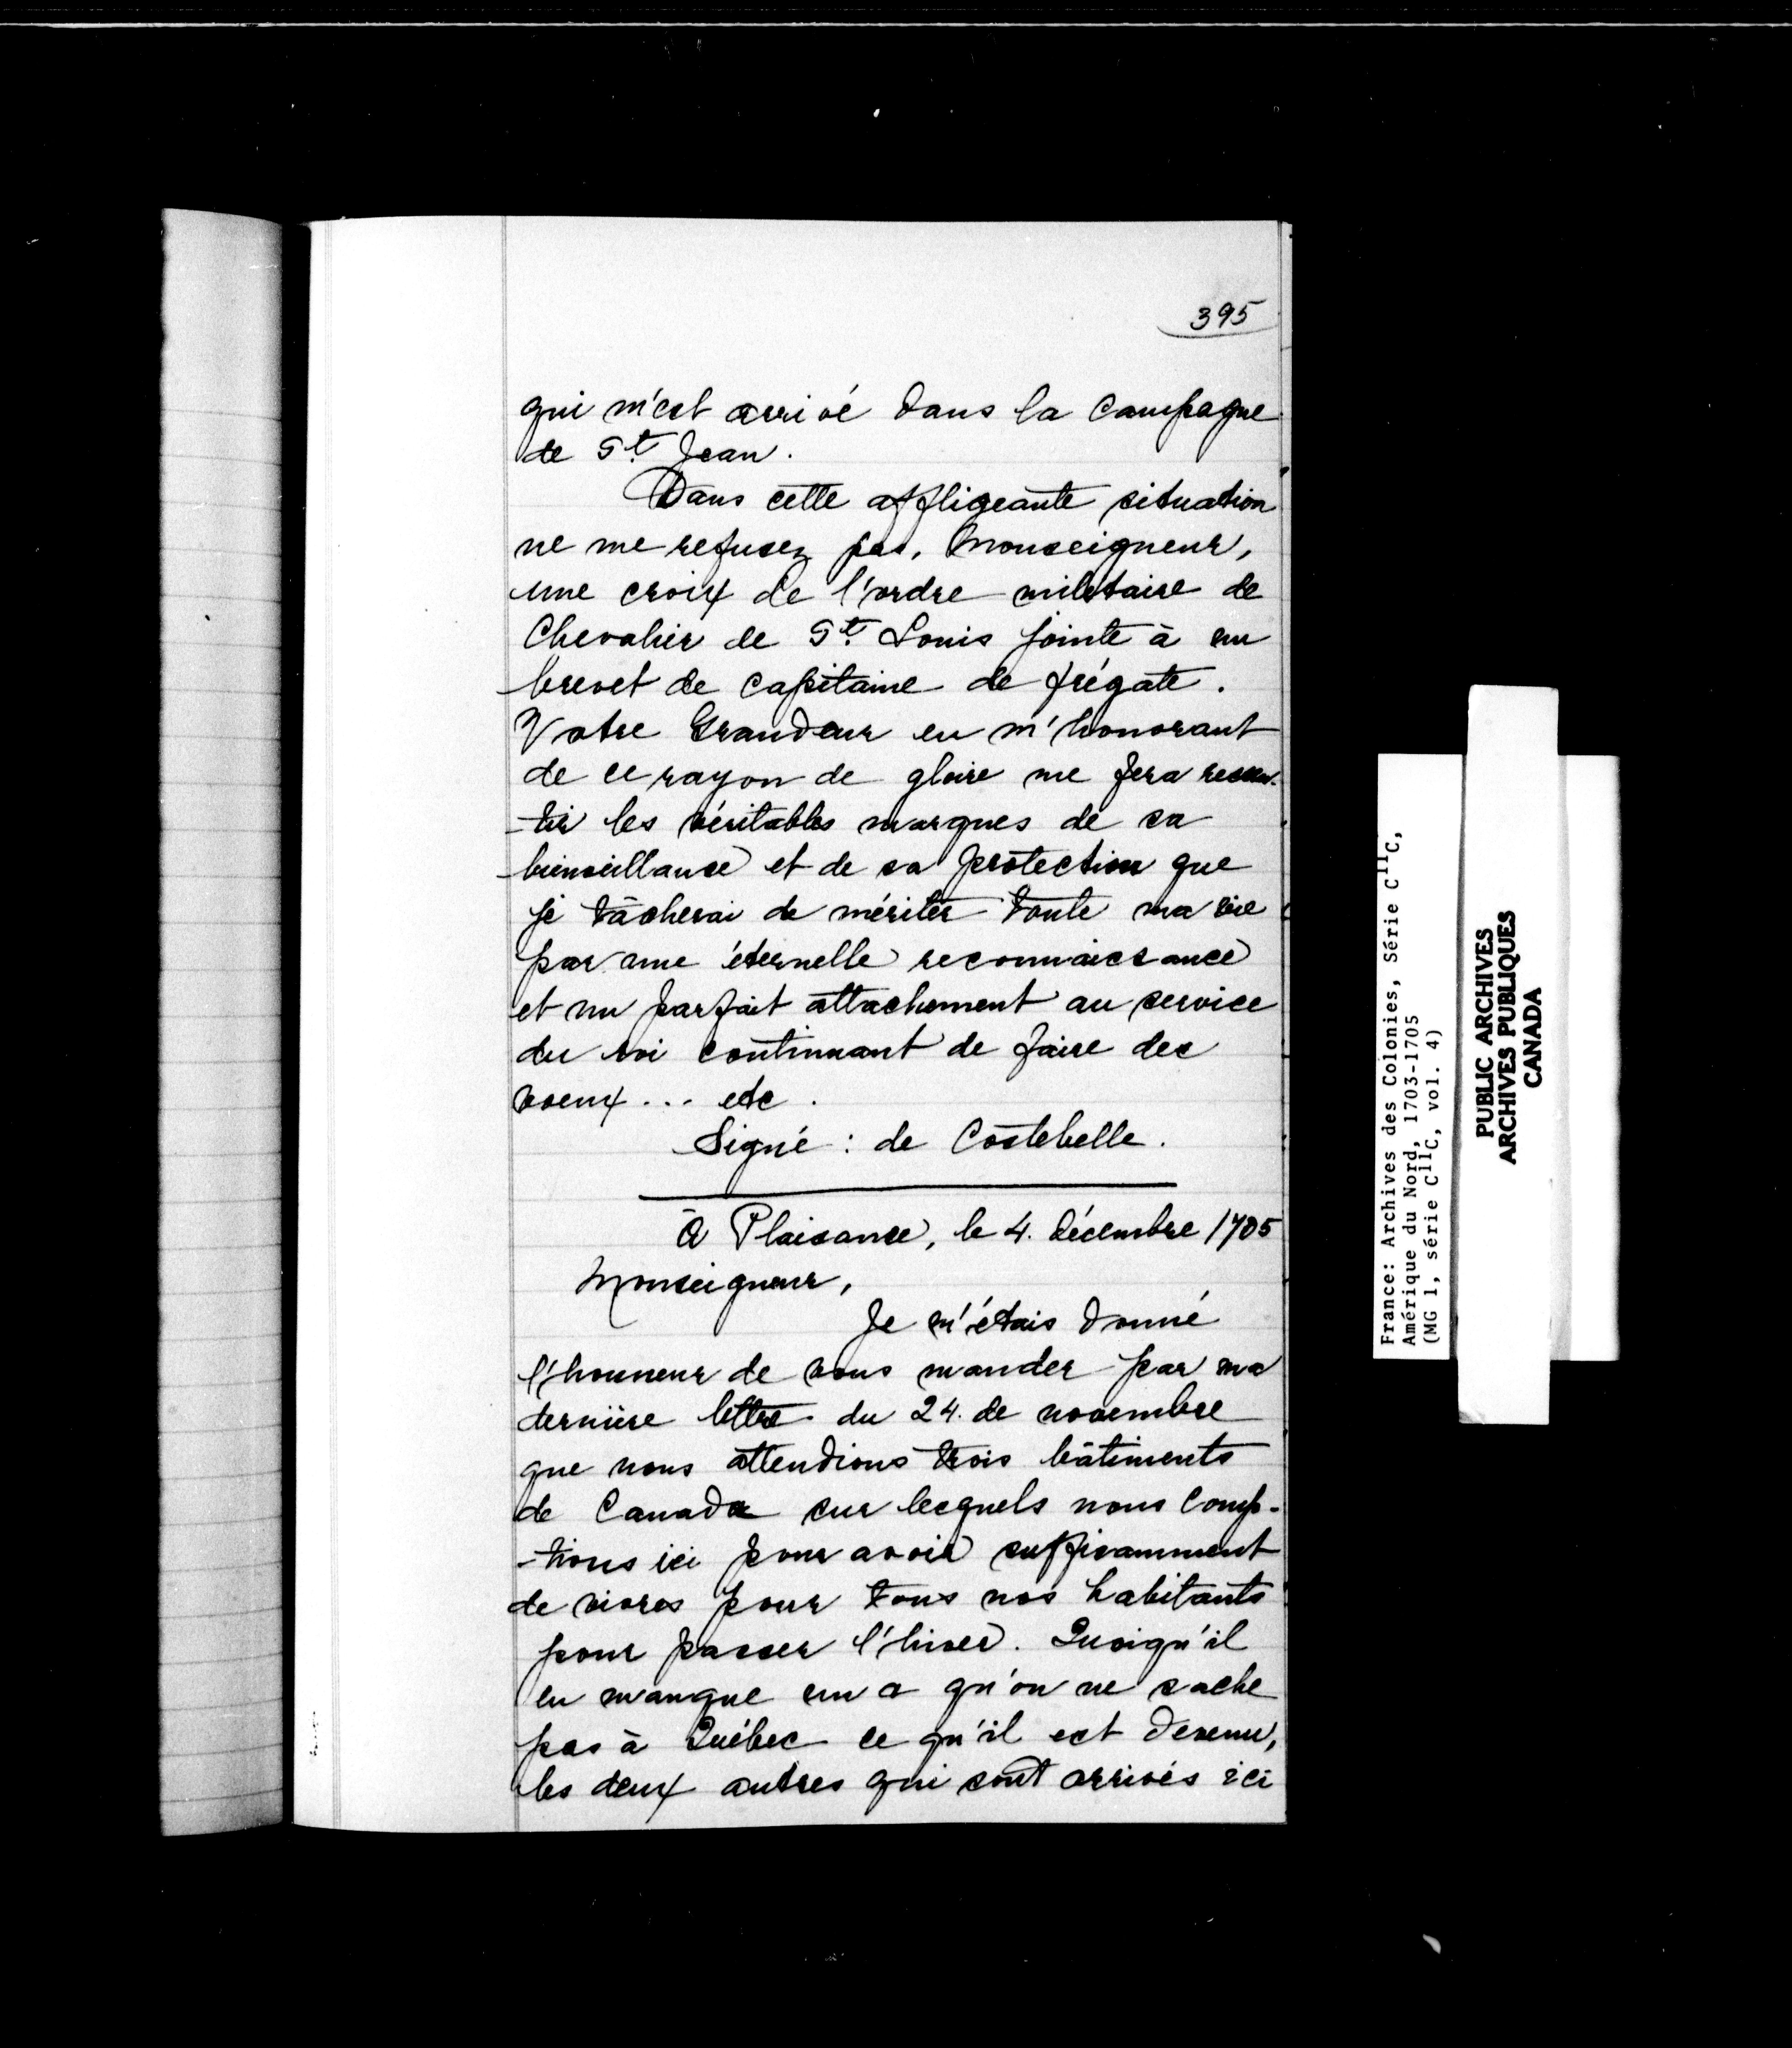 395
qui m'est arrivé dans la campagne
de St. Jean.
Dans cette affligeante situation
ne me refusez pas, Monseigneur,
une croix de l'ordre militaire de
Chevalier de St. Louis jointe à un
brevet de capitaine de frégate.
Votre Grandeur en m'honorant
de ce rayon de gloire me fera ressen-
-tir les véritables marques de sa
bienveillance et de sa protection que
je tâcherai de mériter toute ma vie
par une éternelle reconnaissance
et un parfait attachement au service
du roi continuant de faire des
voeux ... etc.
Signé : de Costebelle.
À Plaisance, le 4. décembre 1705
Monseigneur,
Je m'étais donné
l'honneur de vous mander par ma
dernière lettre du 24. de novembre
que nous attendions trois bâtiments
de Canada sur lesquels nous comp-
-tions ici pour avoir suffisamment
de vivres pour tous nos habitants
pour passer l'hiver. Quoiqu'il
en manque un a qu'on ne sache
pas à Québec ce qu'il est devenu,
les deux autres qui sont arrivés ici
France: Archives des Colonies, série C11C,
Amérique du Nord, 1703-1705
(MG 1, série C11C, vol. 4)
PUBLIC ARCHIVES
ARCHIVES PUBLIQUES
CANADA